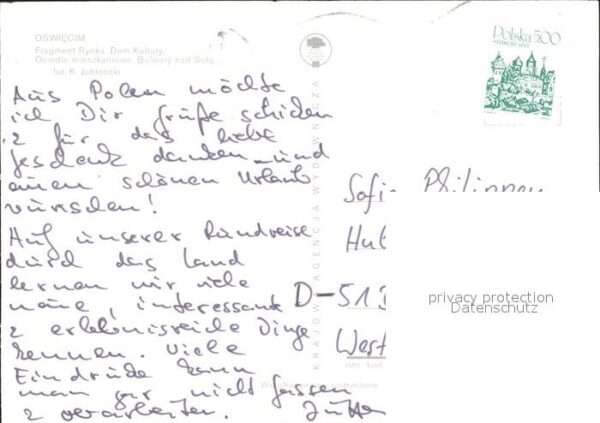 OŚWIĘCIM
Fragment Rynku. Dom Kultury.
Osiedle mieszkaniowe. Bulwary nad Sołą
fot. K. Jabłoński
Aus Polen möchte
ich Dir Grüße schicken
2 für das liebe
Geschenk danken und
einen schönen Urlaub
wünschen!
Auf unserer Rundreise
durch das Land
lernen wir viele
neue, interessante
2 erlebnisreiche Dinge
kennen. Viele
Eindrücke kann
man gar nicht fassen
2 verarbeiten. Jutta
KRAJOWA AGENCJA WYDAWNICZA
Polska 5.00
Sofie Philippen
Hub
D-513
West
privacy protection
Datenschutz